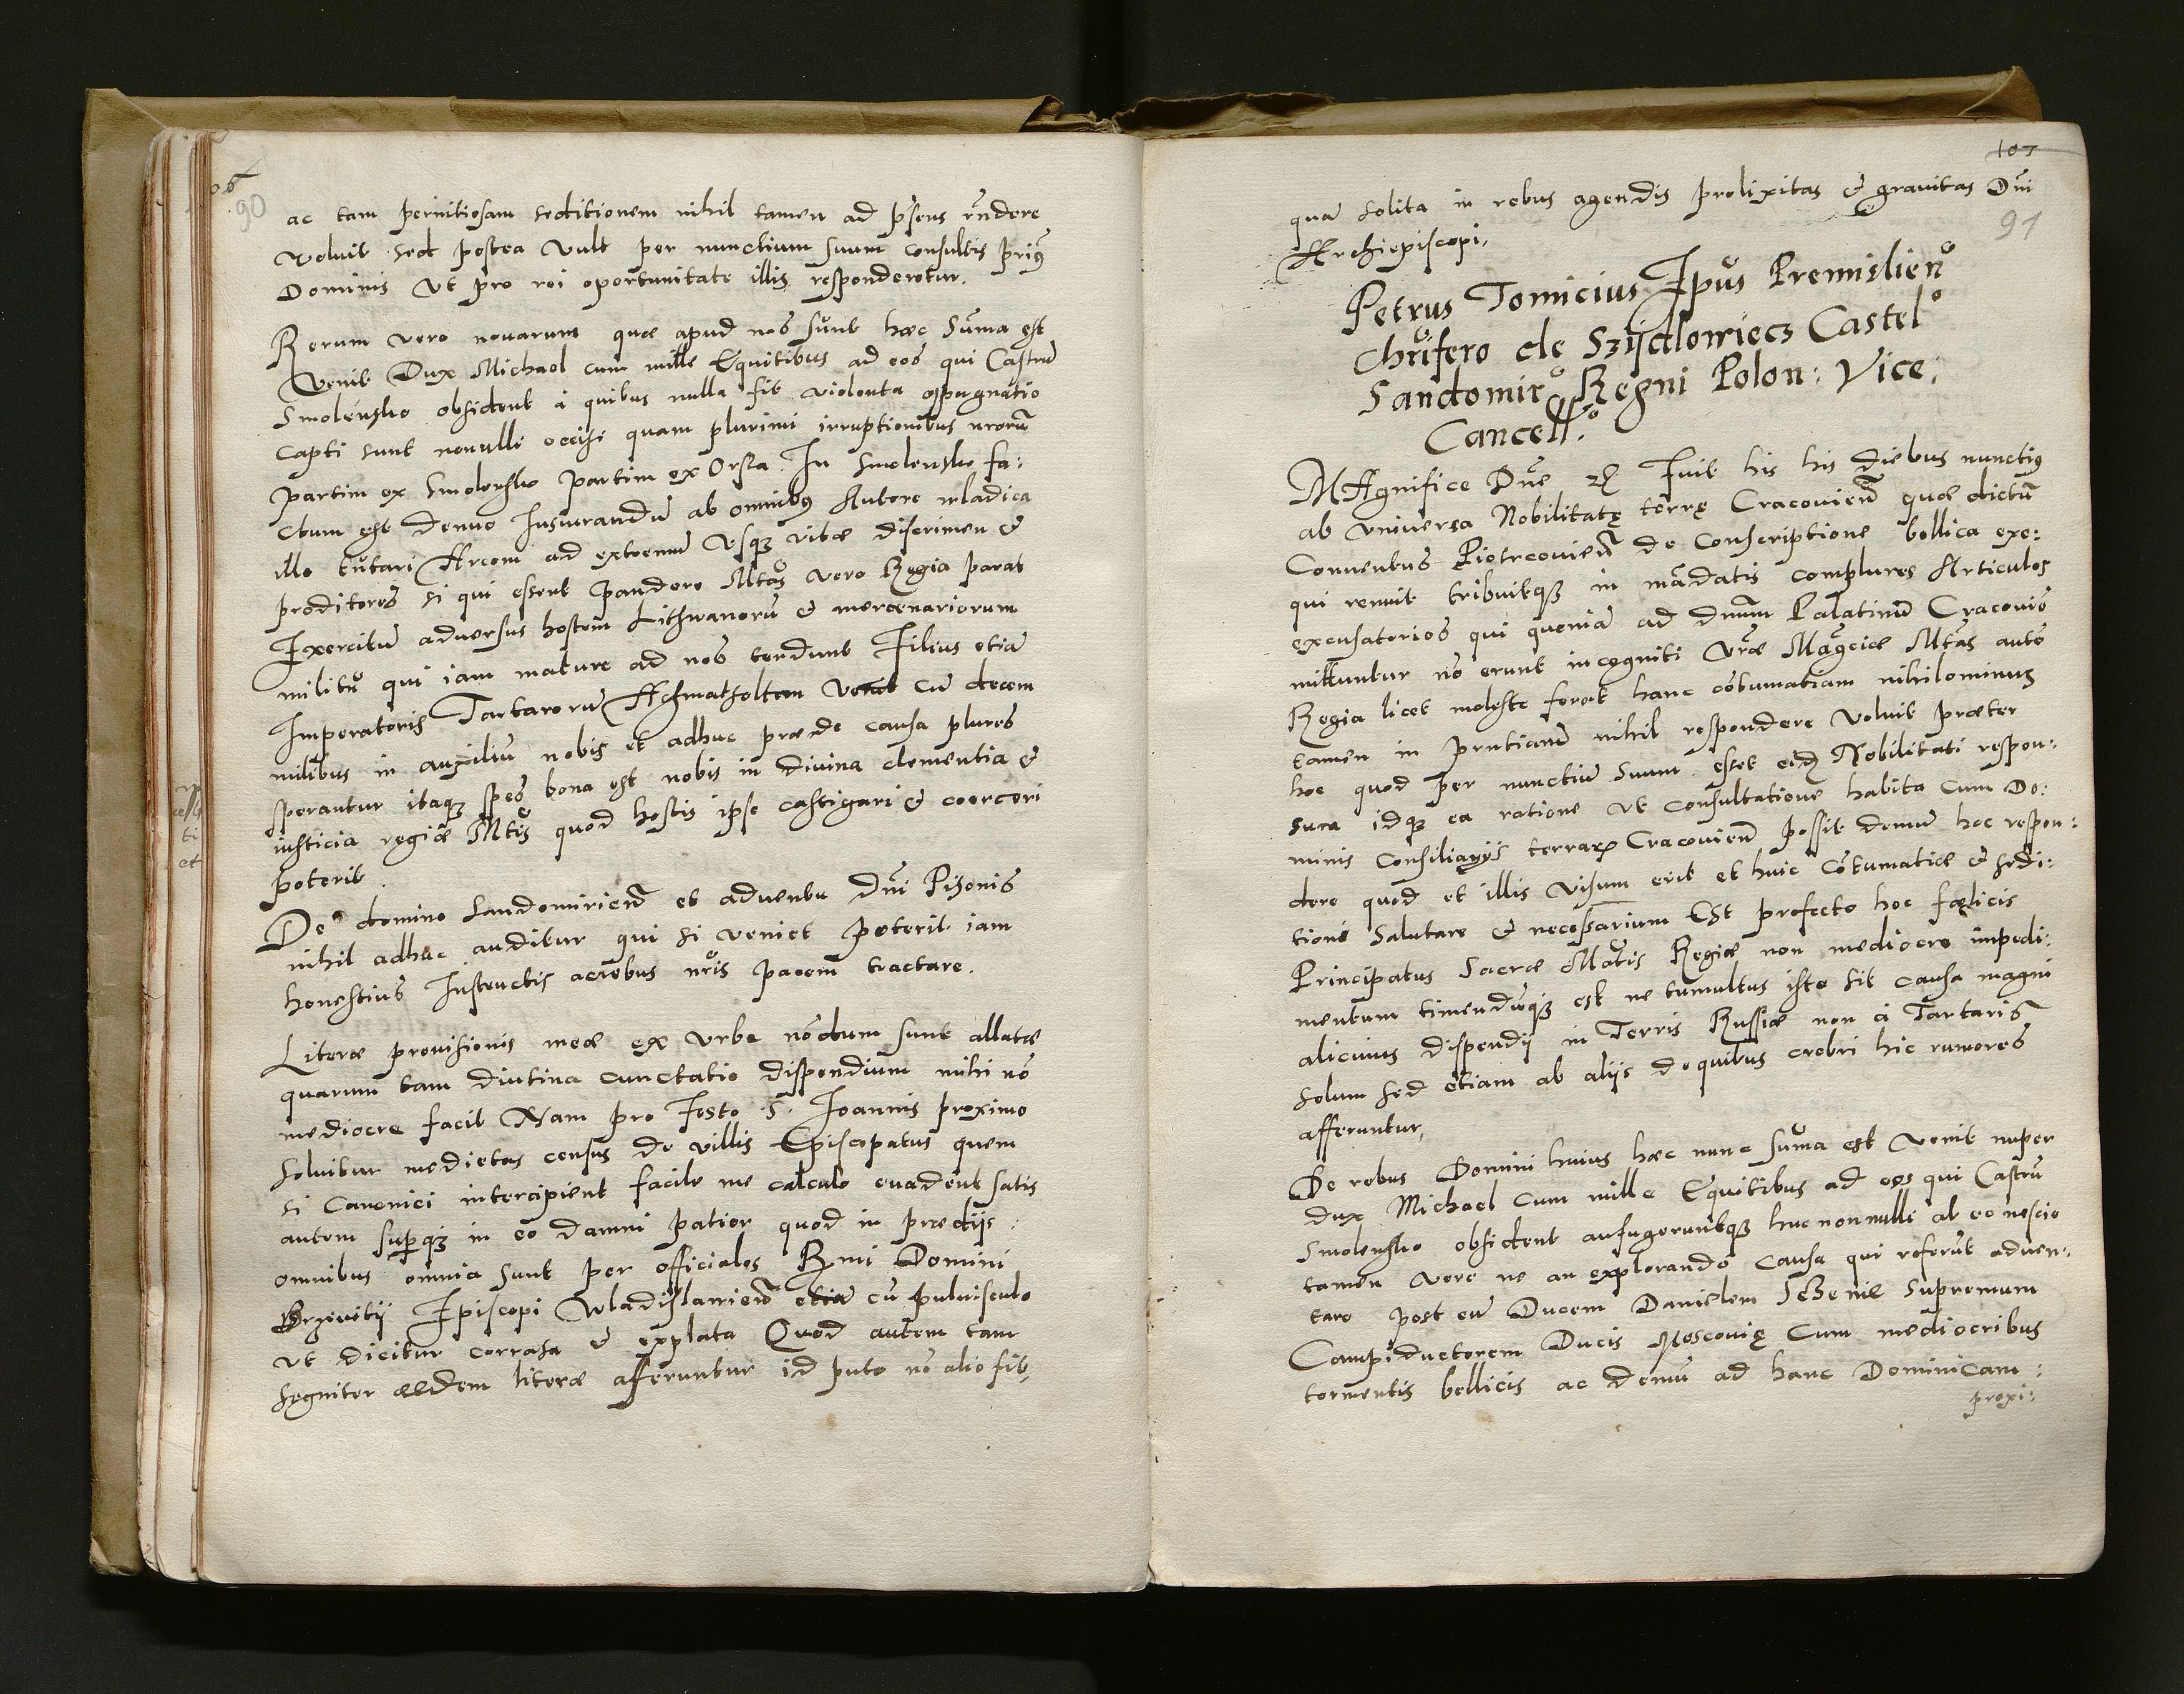 90
ac tam pernitiosam seditionem nihil tamen ad p̃sens rñdere
voluit sed postea vult per nunctium suum consultis prius
Dominis vt pro rei oportunitate illis responderetur.
Rerum vero nouarum quæ apud nos sunt hæc Sum̃a est
Venit Dux Michael cum mille Equitibus ad eos qui Castrũ
Smolensko obsident à quibus nulla fit violenta oppugnatio
Capti sunt nonulli occisi quam plurimi irruptionibus nr̃orũ
partim ex Smolensko partim ex Orsza. In Smolensko fa:
ctum est denuo Iusiurandũ ab omnibus Autore wladica
illo tutari Arcem ad extremũ vsq; vitæ discrimen &
proditores si qui essent pandere Mtãs vero Regia parat
Exercitũ aduersus hostem Lithwanorũ & mercenariorum
militũ qui iam mature ad nos tendunt Filius etiã
Imperatoris Tartarorũ Achmatsoltan Venit cũ decem
milibus in auxiliũ nobis et adhuc prædæ causa plures
sperantur itaq; spes bona est nobis in diuina clementia &
iusticia regiæ Mtĩs quod hostis ipse castigari & coerceri
poterit.
De domino Sandomirien̄ et aduentu Dñi Pisonis
nihil adhuc auditur qui si veniet poterit iam
honestius Instructis aciebus nr̃is pacem tractare.
Literæ prouisionis meæ ex vrbe nõdum sunt allatæ
quarum tam diutina cunctatio dispendium mihi nõ
mediocre facit Nam pro Festo S. Joannis proximo
soluitur medietas census de villis Episcopatus quem
si Canonici intercipient facile me calculo euadent satis
autem superq; in eo damni patior quod in prædijs:
omnibus omnia sunt per officiales Rm̃i Domini
Krzivitij Episcopi Wladislauien̄ etiã cũ puluisculo
vt dicitur corrasa & expilata Quod autem tam
segniter eædem literæ afferuntur id puto nõ alio fit,
107
91
qua solita in rebus agendis prolixitas & grauitas Dñi
Archiepiscopi,
Petrus Tomicius Ep̃us Premislien̄
Chr̃ifero de Szijdlowiecz Castel
Sandomir Regni Polon: Vice:
Cancell:
MAgnifice Dñe &c Fuit hic his diebus nunctius
ab vniuersa Nobilitatę terrę Cracouien̄ quæ dictũ
Conuentus Piotrcouien̄ de Conscriptione bellica exe:
qui renuit tribuitq; in mãdatis complures Articulos
excusatorios qui quoniã ad dnũm Palatinũ Cracouiẽ
mittuntur nõ erunt incogniti Vr̃æ Mag̃ciæ Mtãs autẽ
Regia licet moleste ferat hanc cõtumatiam nihilominus
tamen in pr̃ntiarũ nihil respondere voluit præter
hoc quod per nunctiũ suum esset eid. Nobilitati respon:
sura idq; ea ratione vt consultatione habita cum Do:
minis Consiliarijs terrarũ Cracouien̄ possit demũ hoc respon:
dere quod et illis visum erit et huic cõtumatiæ & sedi:
tioni salutare & necessarium Est profecto hoc fælicis
Principatus Sacræ Mãtis Regiæ non mediocre impedi:
mentum timendũq; est ne tumultus iste sit causa magni
alicuius dispendij in Terris Russiæ non à Tartaris
solum sed etiam ab alijs de quibus crebri hic rumores
afferuntur,
De rebus Domini huius hæc nunc sum̃a est Venit nuper
dux Michael cum mille Equitibus ad eos qui Castrũ
Smolensko obsident aufugeruntq; huc nonnulli ab eo nescio
tamen vere ne an explorando causa qui referũt aduen:
tare post eũ Ducem Danielem Sczenie Supremum
Campiductorem Ducis Moscouię Cum mediocribus
tormentis bellicis ac demũ ad hanc Dominicam:
proxi: